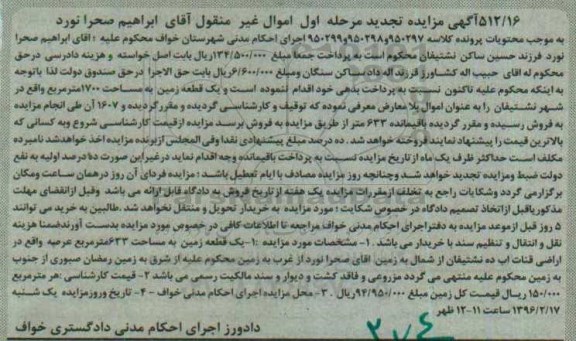 ۵۱۲/۱۶آگهی مزایده تجدید مرحله اول اموال غیر منقول آقای ابراهیم صحرا نورد
به موجب محتویات پرونده کلاسه ۹۵۰۲۹۷و۹۵۰۲۹۸و۹۵۰۲۹۹ اجرای احکام مدنی شهرستان خواف محکوم علیه : آقای ابراهیم صحرا
نورد فرزند حسین ساکن نشتیفان محکوم است به پرداخت جمعا مبلغ ۱۳۴/۵۰۰/۰۰۰ریال بابت اصل خواسته و هزینه دادرسی درحق
محکوم له اقای حبیب اله کشاورز فرزند اله داد ساکن سنگان ومبلغ ۶/۶۰۰/۰۰۰ریال بابت حق الاجرا درحق صندوق دولت لذا باتوجه
به اینکه محکوم علیه تاکنون نسبت به پرداخت بدهی خود اقدام ننموده است و یک قطعه زمین به مساحت ۱۷۰۰مترمربع واقع در
شهر نشتیفان را به عنوان اموال بلا معارض معرفی نموده که توقیف و کارشناسی گردیده و مقررگردیده و ۱۶۰۷ آن طی انجام مزایده
به فروش رسیده و مقرر گردیده باقیمانده ۶۳۳ متر از طریق مزایده به فروش برسد مزایده ازقیمت کارشناسی شروع وبه کسانی که
بالاترین قیمت را پیشنهاد نمایند فروخته خواهدشد . ده درصد مبلغ پیشنهادی نقدا وفی المجلس ازبرنده مزایده اخذ خواهدشد نامبرده
مکلف است حداکثر ظرف یک ماه از تاریخ مزایده نسبت به پرداخت باقیمانده وجه اقدام نماید درغیراین صورت ده درصد اولیه به نفع
دولت ضبط ومزایده تجدید خواهد شد وچنانچه روز مزایده مصادف با ایام تعطیل باشد : مزایده فردای آن روز درهمان ساعت ومکان
برگزارمی گردد وشکایات راجع به تخلف ازمقررات مزایده یک هفته از تاریخ فروش به دادگاه قابل ارائه می باشد وقبل ازانقضای مهلت
مذکوریاقبل ازاتخاذ تصمیم دادگاه در خصوص شکایت : مورد مزایده به خریدار تحویل و منتقل نخواهد شد .طالبین به خرید می توانند
۵ روز قبل ازموعد مزایده به دفتراجرای احکام مدنی خواف مراجعه تا اطلاعات کافی در خصوص مورد مزایده بدست آورندضمنا هزینه
نقل و انتقال و تنظیم سند با خریدار می باشد . ۱- مشخصات مورد مزایده :۱-یک قطعه زمین به مساحت ۶۳۳مترمربع عرصه واقع در
اراضی قنات اب ده نشتیفان از شمال به زمین اقای صحرا نورد از غرب به زمین محکوم علیه از شرق به زمین رمضان صبوری از جنوب
به زمین محکوم علیه منتهی می گردد مزروعی و فاقد کشت و دیوار و سند مالکیت رسمی می باشد ۲- قیمت کارشناسی :هر مترمربع
۱۵۰/۰۰۰ ریال قیمت کل زمین مبلغ ۹۴/۹۵۰/۰۰۰ریال . ۳- محل مزایده:اجرای احکام مدنی خواف - ۴- تاریخ وروزمزایده یک شنبه
۱۳۹۶/۲/۱۷ ساعت ۱۱-۱۲ ظهر
دادورز اجرای احکام مدنی دادگستری خواف